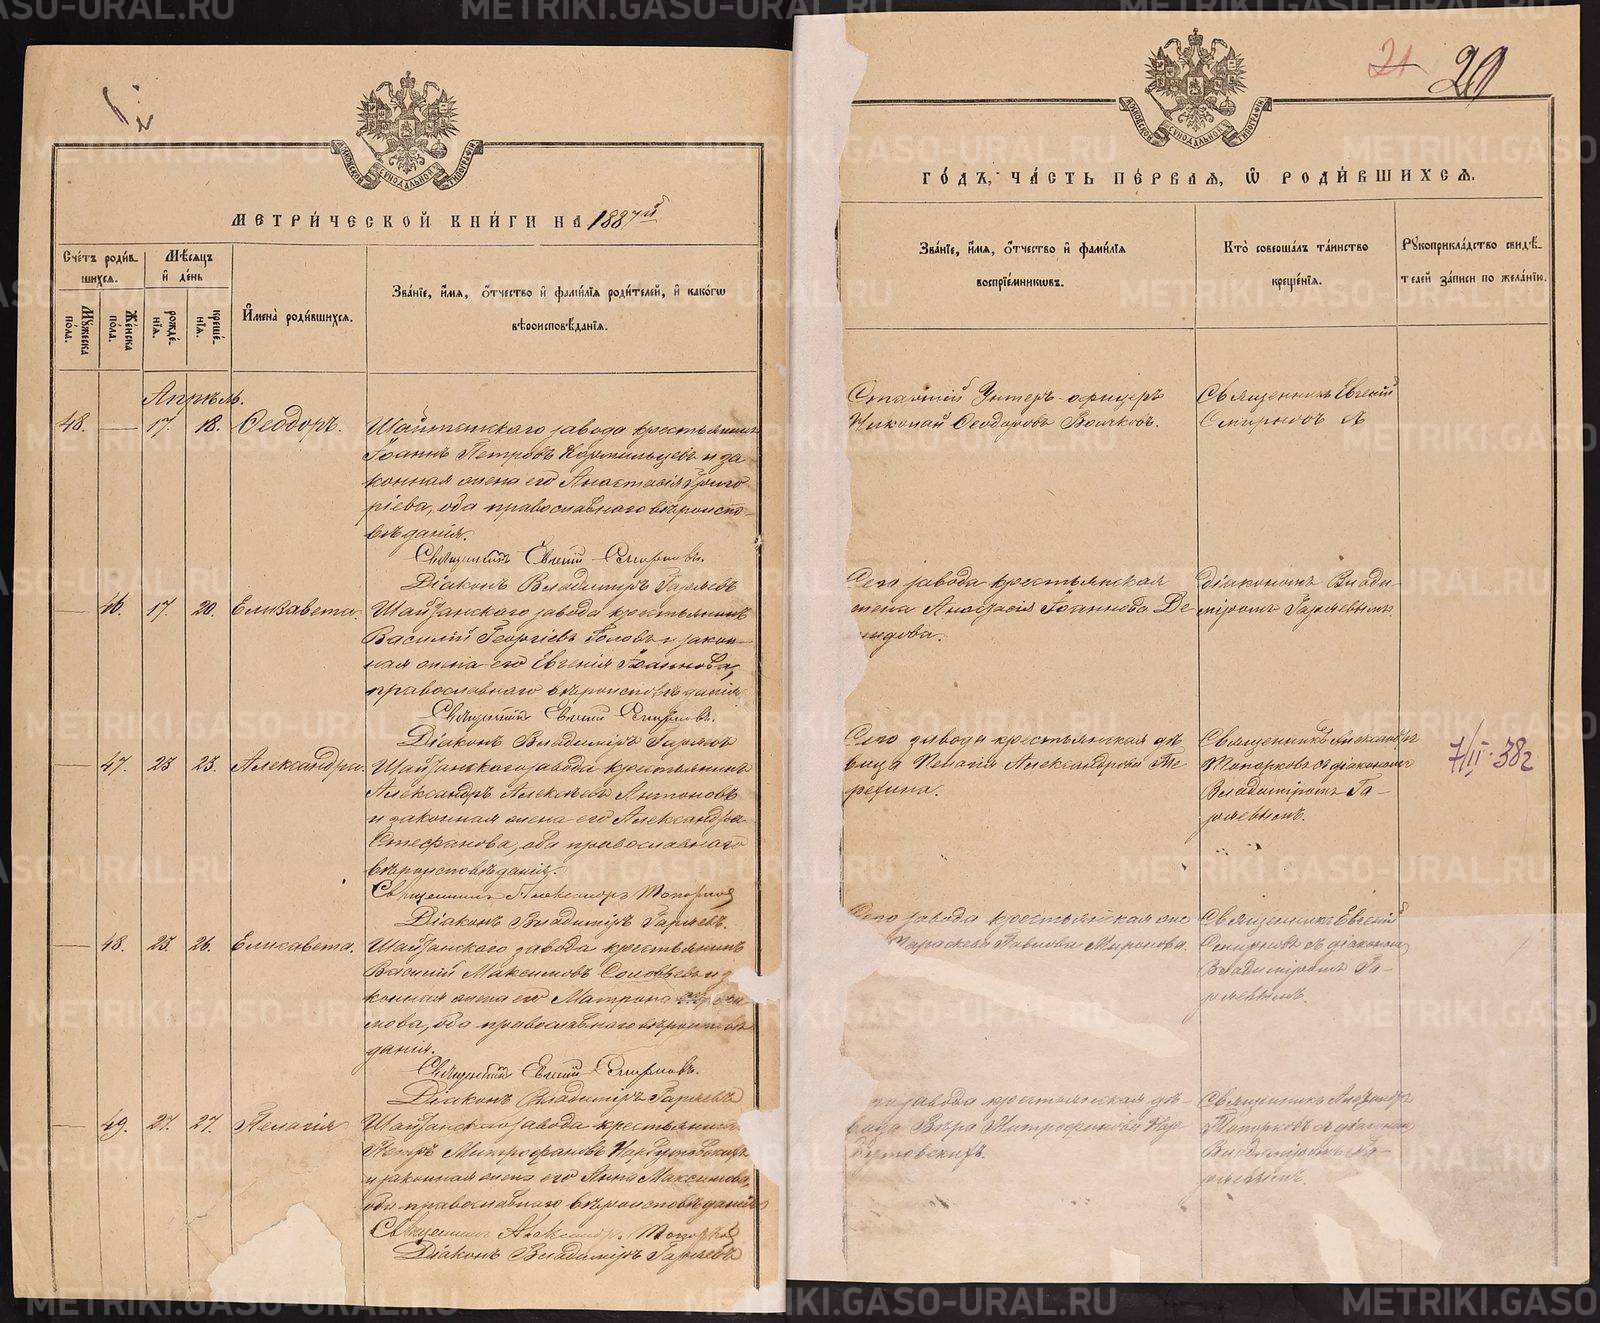 21 20
МЕТРИ́ЧЕСКОЙ КНИ́ГИ НА 1887й
ГО́ДЪ, ЧА́СТЬ ПЕ́РВАЯ, Ѿ РОДИ́ВШИХСЯ.
Сче́тъ роди́в-
шихся.
Му́жеска
по́ла.
Же́нска
по́ла.
Мѣ́сяцъ
и҆ де́нь
рожде́-
нїя.
креще́-
нїя.
И҆мена̀ роди́вшихся.
Зва́нїе, и҆́мя, ѻ҆́тчество и҆ фами́лїя роди́телей, и҆ како́гѡ
вѣроисповѣ́данїя.
Зва́нїе, и҆́мя, ѻ҆́тчество и҆ фами́лїя
воспрїе́мниковъ.
Кто̀ соверша́лъ та́инство
креще́нїя.
Рꙋкоприкла́дство свидѣ́-
телей за́писи по жела́нїю.
Апрѣль.
48. — 17. 18. Ѳеодоръ.
Шайтанскаго завода крестьянинъ
Іоаннъ Петровъ Кормильцевъ и за
конная жена его Анастасія Григо
ріева, оба православнаго вѣроиспо-
вѣданія.
Священникъ Евгеній Смирновъ.
Діаконъ Владиміръ Гаряевъ
Старшій Унтеръ-офицеръ
Николай Ѳеодоровъ
Священникъ Евгеній
Смирновъ
— 46. 17. 20. Елизавета.
Шайтанскаго завода крестьянинъ
Василій Георгіевъ Головъ и закон-
ная жена его Евгенія Іоаннова,
православнаго вѣроисповѣданія
Священникъ Евгеній Смирновъ.
Діаконъ Владиміръ Гаряевъ
Сего завода крестьянская
жена Анастасія Іоаннова Де
мидова.
Діаконъ Влади-
міромъ Гаряевымъ
— 47. 23 23. Александра.
Шайтанскаго завода крестьянинъ
Александръ Алексѣевъ Антоновъ
и законная жена его Александра
Стефанова, оба православнаго
вѣроисповѣданія.
Священникъ Александръ Топорковъ
Діаконъ Владиміръ Гаряевъ.
Сего завода крестьянская дѣ
вица Пелагія Александрова Те
рехина.
Священникъ Александръ
Топорковъ съ діакономъ
Владиміромъ Га-
ряевымъ.
7/II-38г
— 48. 25 26. Елисавета.
Шайтанскаго завода крестьянинъ
Василій Максимовъ Соловьевъ и за
конная жена его Матрона
мова, оба православнаго вѣроисповѣ
данія.
Священникъ Евгеній Смирновъ.
Діаконъ Владиміръ Гаряевъ
Сего завода крестьянская же
Параскева Павлова Миронова.
Священникъ Евгеній
Смирновъ съ діакономъ
Владиміромъ Га-
ряевымъ.
— 49. 27. 27. Пелагія
Шайтанскаго завода крестьянинъ
Петръ Митрофановъ Нарбутовскихъ
и законная жена его Анна Максимова,
оба православнаго вѣроисповѣданія
Священникъ Александръ Топорковъ
Діаконъ Владиміръ Гаряевъ
го завода крестьянская дѣ-
вица Вѣра Митрофанова Нар
бутовскихъ.
Священникъ Александръ
Топорковъ съ діаконом
Владиміромъ Га-
ряевымъ.
METRIKI.GASO-URAL.RU